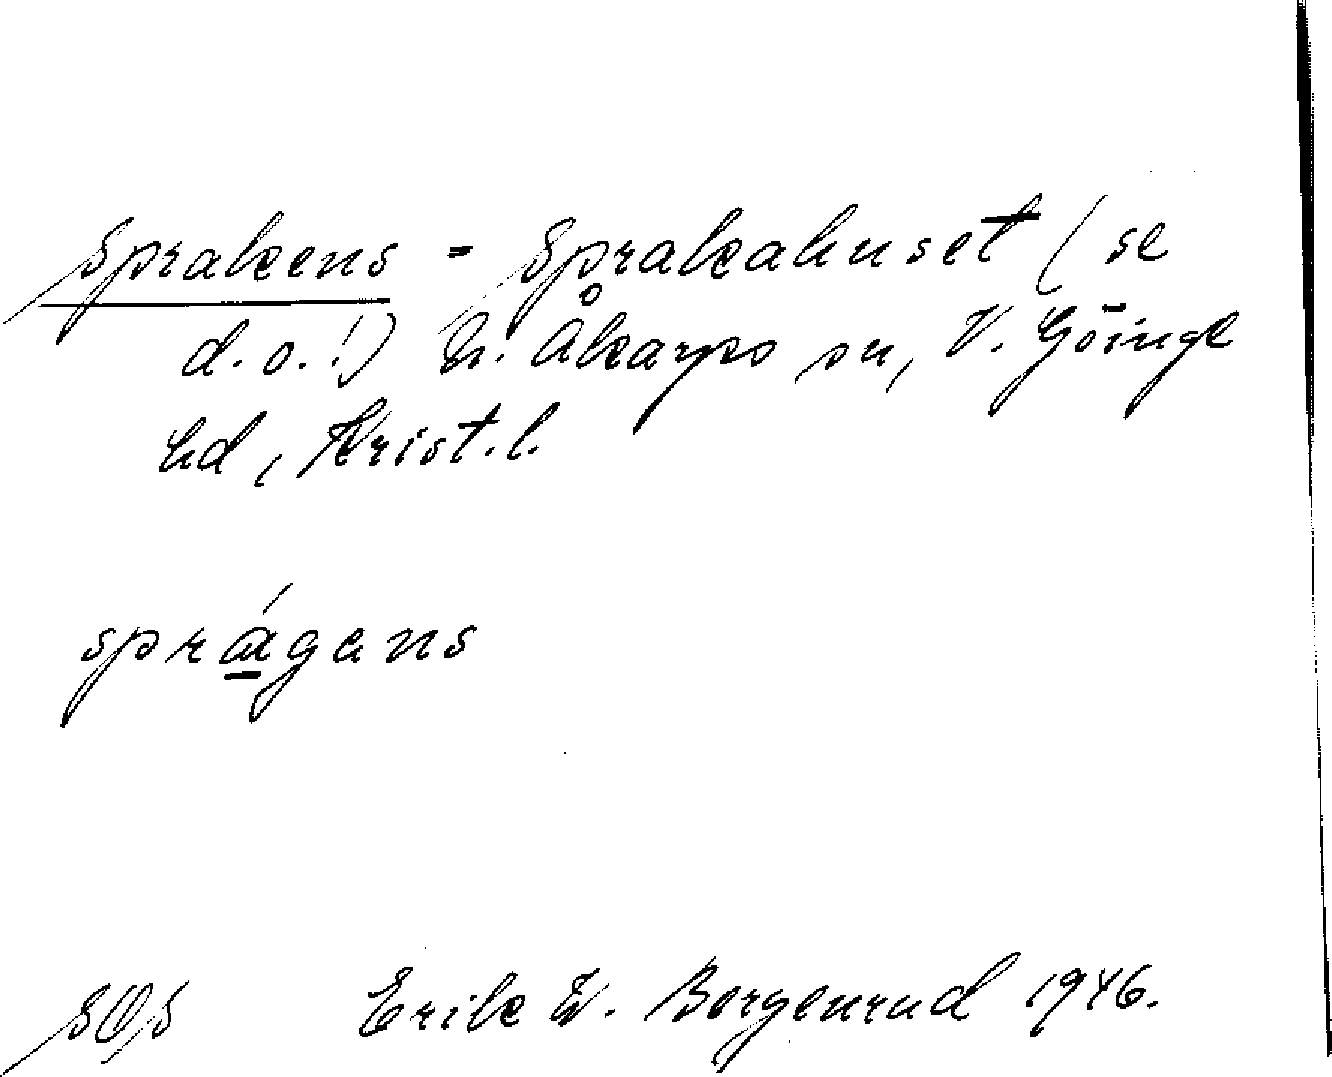 Sprakens = Sprakahuset (se
d.o.!) N. Åkarps sn, V. Göinge
hd, Krist. l.
sprágans
SOS Erik W. Borgenrud 1946.